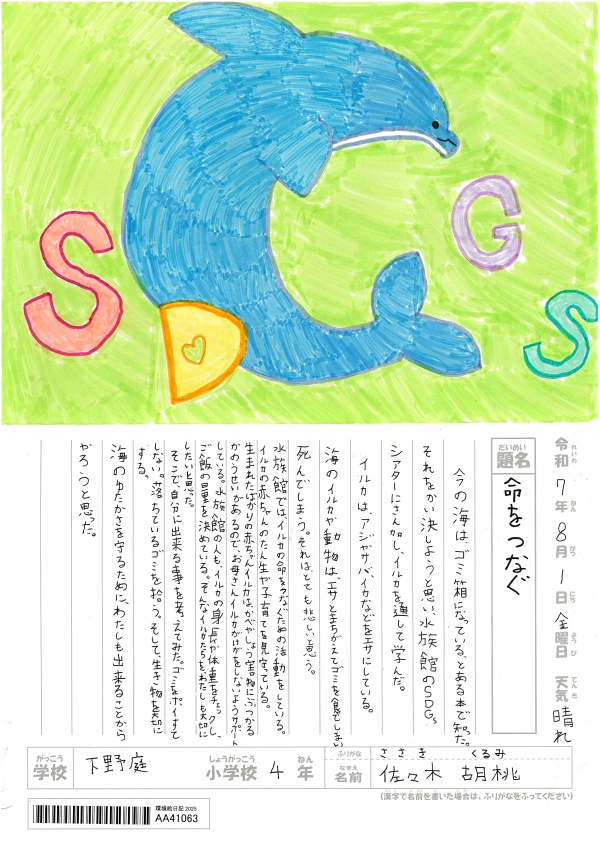 S
D
G
S
令和7年8月1日金曜日 天気 晴れ
れいわ ねん がつ にち ようび てんき
だいめい
題名
命をつなぐ
今の海は、ゴミ箱になっている、とある本で知った。
それをかい決しようと思い、水族館のSDGs
シアターにさん加し、イルカを通して学んだ。
イルカは、アジやサバ、イカなどをエサにしている。
海のイルカや動物は、エサとまちがえてゴミを食べてしまい
死んでしまう。それは、とても悲しいと思う。
水族館では、イルカの命をつなぐための活動をしている。
イルカの赤ちゃんのたん生や子育てを見守っている。
生まれたばかりの赤ちゃんイルカは、かべやしょう害物にぶつかる
かのうせいがあるので、お母さんイルカがけがをしないようサポート
している。水族館の人も、イルカの身長や体重をチェックし、
ご飯の量を決めている。そんなイルカたちを、わたしも大切に
したいと思った。
そこで自分に出来る事を考えてみた。ゴミをポイすて
しない。落ちているゴミを拾う。そして、生き物を大切に
する。
海のゆたかさを守るために、わたしも出来ることから
やろうと思った。
がっこう しょうがっこう ねん ふりがな ささき くるみ
学校 下野庭 小学校 4年 なまえ 名前 佐々木 胡桃
(漢字で名前を書いた場合は、ふりがなをふってください)
環境絵日記 2025
AA41063